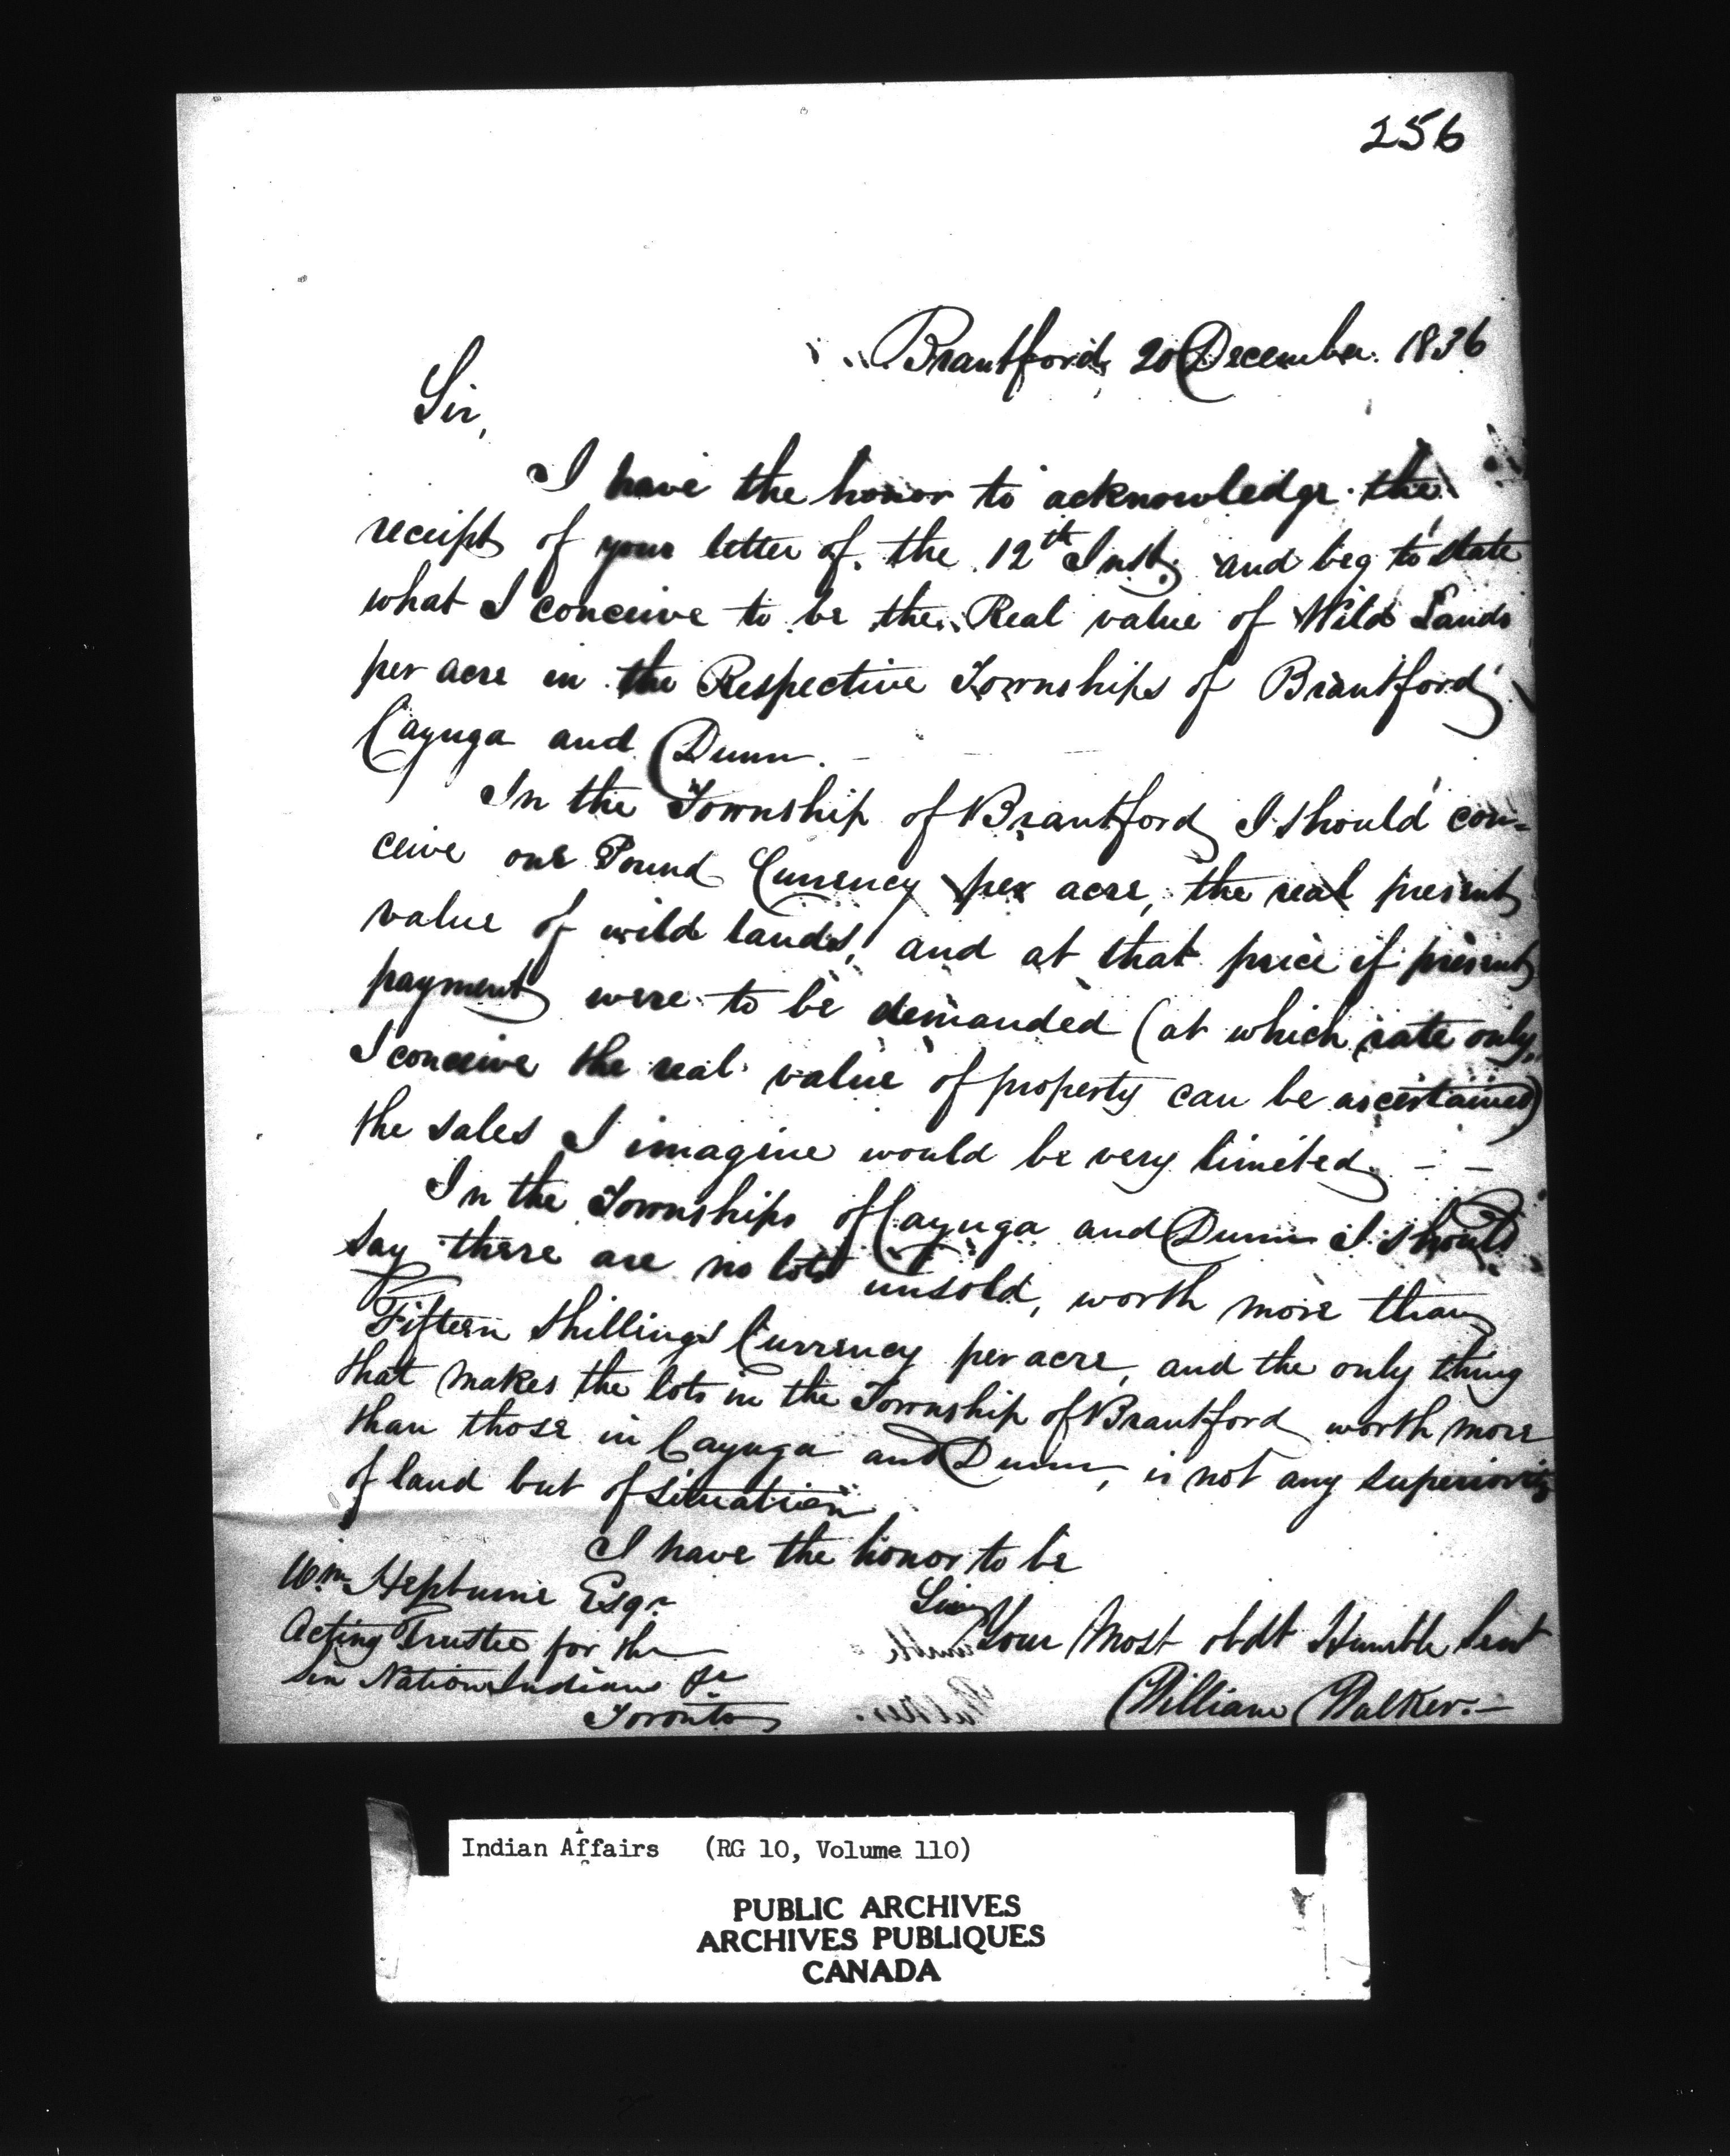 256
Brantford, 20 December. 1836
Sir,
I have the honor to acknowledge the
receipt of your letter of the 12th Inst, and beg to state
what I conceive to be the Real value of Wild Lands
per acre in the Respective Townships of Brantford
Cayuga and Dunn. -
In the Township of Brantford I should con-
ceive one Pound Currency per acre, the real present
value of wild lands, and at that price if present
payment were to be demanded (at which rate only,
I conceive the real value of property can be ascertained)
the sales I imagine would be very limited. - -
In the Townships of Cayuga and Dunn I should
say there are no lots unsold, worth more than
Fifteen Shillings Currency per acre, and the only thing
that makes the lots in the Township of Brantford worth more
than those in Cayuga and Dunn, is not any superiority
of land but of situation
I have the honor to be
Sir,
Your Most obdt Humble Sert
William Walker. -
Wm Hepburne Esqr.
Acting Trustee for the
Six Nations Indians &c
Toronto
Indian Affairs (RG 10, Volume 110)
PUBLIC ARCHIVES
ARCHIVES PUBLIQUES
CANADA